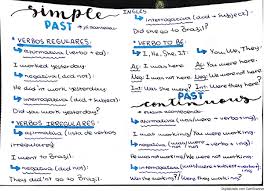 simple
PAST
• VERBOS REGULARES:
afirmativa (verbo + ed):
I worked yesterday.
negativa (did not):
He did not work yesterday.
interrogativa (did + subject):
Did she work yesterday?
• VERBOS IRREGULARES:
afirmativa (
irregulares)
I went to Brazil.
negativa (did not):
They didn't go to Brazil.
INGLÊS
interrogativa (did + subject):
Did she go to Brazil?
• VERBO TO BE
I, He, She, It:
Af: I was here.
Neg: I was not here.
Int: Was she here?
You, We, They:
Af: You were here
Neg: We were not here
Int: Were they here?
PAST
continuous
afirmativa (was/were + verbo + -ing):
I was working / You were working.
negativa (was/were + not + verbo + -ing):
He was not working / We were not working.
interrogativa (was/were + verbo + -ing):
Was she working? / Were they working?
Digitalizado com CamScanner